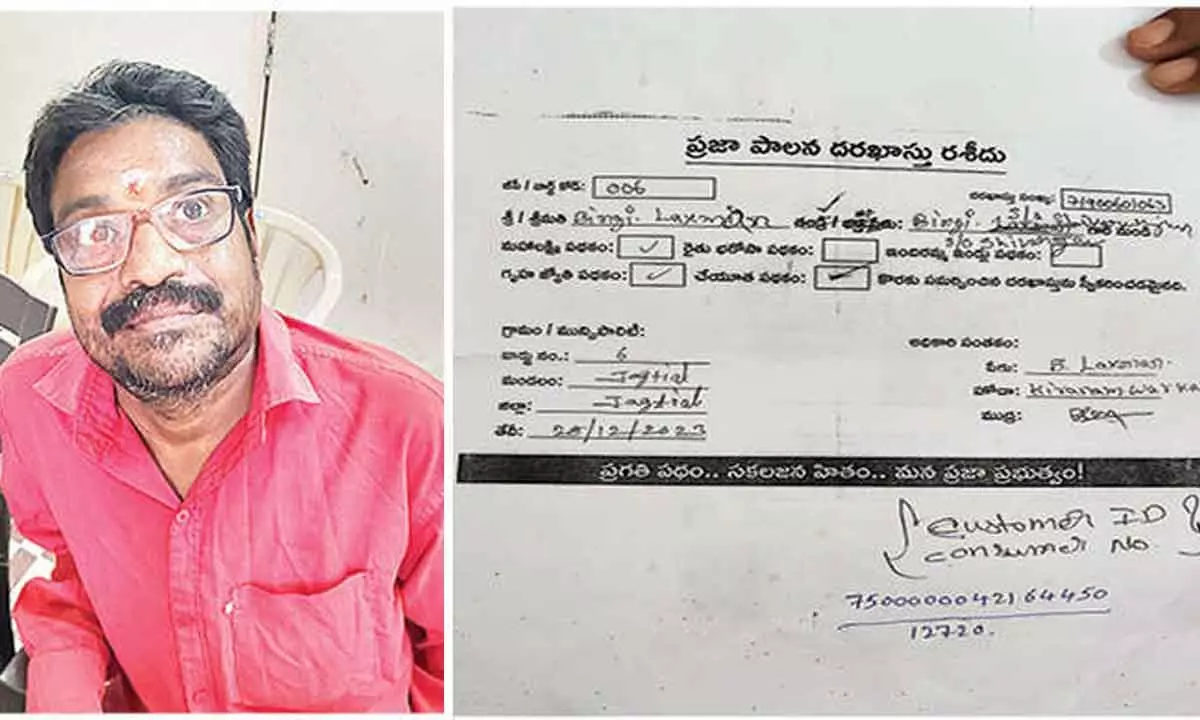 ప్రజా పాలన దరఖాస్తు రశీదు
జిపి / వార్డ్ కోడ్: 006 దరఖాస్తు సంఖ్య:
శ్రీ / శ్రీమతి Bingi. Laxman తండ్రి / Bingi.
మహాలక్ష్మి పథకం: ✓ రైతు భరోసా పథకం: ఇందిరమ్మ ఇండ్లు పథకం:
గృహ జ్యోతి పథకం: ✓ చేయూత పథకం: ✓ కొరకు సమర్పించిన దరఖాస్తును స్వీకరించడమైనది.
గ్రామం / మున్సిపాలిటి:
వార్డు నం.: 6
మండలం: Jagtial
జిల్లా: Jagtial
తేదీ: 28/12/2023
అధికారి సంతకం:
పేరు: B. Laxman
హోదా:
ముద్ర:
ప్రగతి పథం.. సకలజన హితం.. మన ప్రజా ప్రభుత్వం!
Customer ID
Consumer No
7500000042164450
12720.